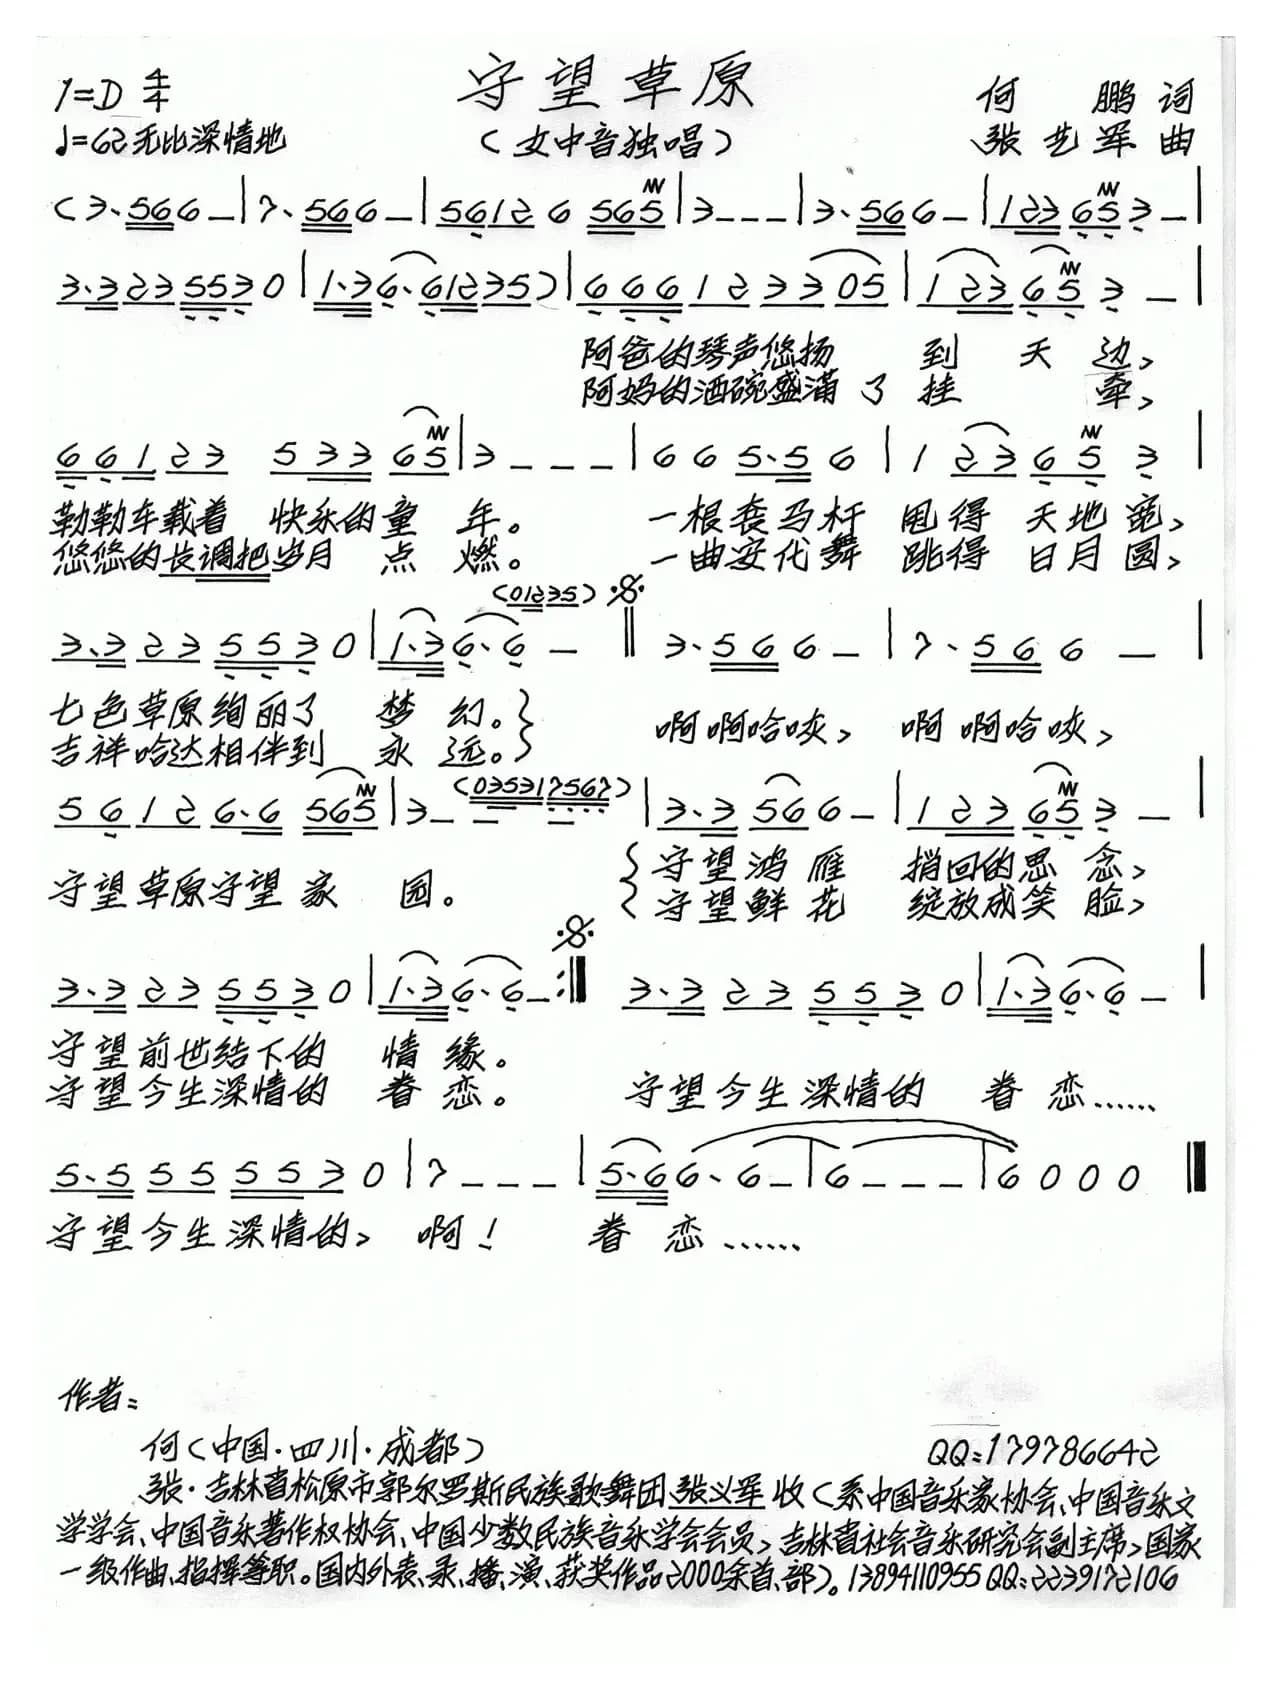 守望草原
1=D 4/4
何 鹏 词
♩=62 无比深情地
（女中音独唱）
张艺军 曲
(3·566–|7·566–|56126565|3---|3·566–|123653–|
3·3235530|1·36·61235)|666123305|123653–|
阿爸的琴声悠扬 到 天 边，
阿妈的酒碗盛满了挂 牵，
66123 53365|3---|665·56|123653|
勒勒车载着 快乐的童 年。 一根套马杆 甩得 天地宽，
悠悠的长调把岁月 点 燃。 一曲安代舞 跳得 日月圆，
(01235)
3·3235530|1·36·6–‖3·566–|7·566–|
七色草原绚丽了 梦 幻。 啊啊哈咴， 啊啊哈咴，
吉祥哈达相伴到 永 远。
(035317567)
56126·6565|3––|3·35666–|123653–|
守望草原守望 家 园。 守望鸿雁 捎回的思 念，
守望鲜花 绽放成笑 脸，
3·3235530|1·36·6–:‖3·3235530|1·36·6–|
守望前世结下的 情 缘。
守望今生深情的 眷 恋。 守望今生深情的 眷 恋……
5·5555530|7---|5·66·6–|6---|6000‖
守望今生深情的， 啊！ 眷 恋……
作者：
何（中国·四川·成都） QQ：179786642
张·吉林省松原市郭尔罗斯民族歌舞团 张义军 收（系中国音乐家协会、中国音乐文
学学会、中国音乐著作权协会、中国少数民族音乐学会会员，吉林省社会音乐研究会副主席，国家
一级作曲、指挥等职。国内外表、录、播、演、获奖作品2000余首、部）。13894110955 QQ：2239172106